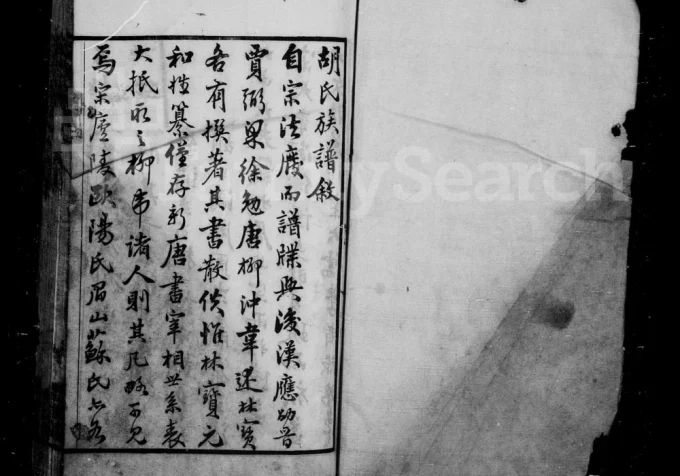 胡氏族譜敘
自宗法廢而譜牒興後漢應劭晉
賈弼梁徐勉唐柳沖韋述林寶
各有撰著其書散佚惟林寶元
和姓纂僅存新唐書宰相世系表
大抵取之柳韋諸人則其凡略可見
焉宋廬陵歐陽氏眉山蘇氏亦各
Search